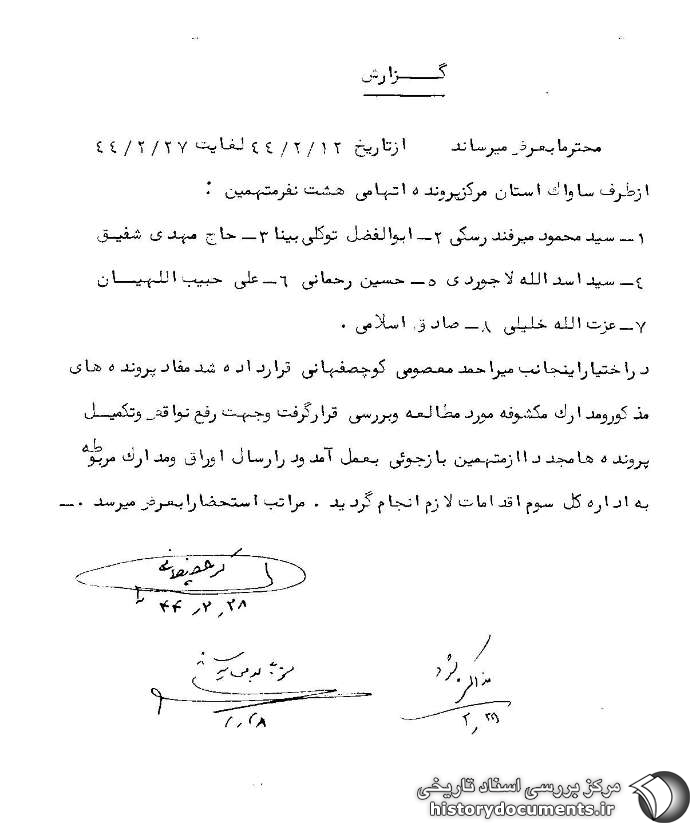 گـــزارش
محترما بعرض میرساند از تاریخ ٤٤/٢/١٢ لغایت ٤٤/٢/٢٧
از طرف ساواك استان مركز پرونده اتهامی هشت نفر متهمین :
١ــ سید محمود میرفندرسكی ٢ــ ابوالفضل توكلی بینا ٣ــ حاج مهدی شفیق
٤ــ سید اسد الله لاجوردی ٥ــ حسین رحمانی ٦ــ علی حبیب اللهیـــان
٧ــ عزت الله خلیلی ٨ــ صادق اسلامی .
در اختیار اینجانب میراحمد معصومی كوچصفهانی قرار داده شد مفاد پرونده های
مذكور و مدارك مكشوفه مورد مطالعه و بررسی قرار گرفت و جهت رفع نواقص و تكمیل
پرونده ها مجددا از متهمین بازجوئی بعمل آمد و در ارسال اوراق و مدارك مربوطه
به اداره كل سوم اقدامات لازم انجام گردید . مراتب استحضارا بعرض میرسد .ــ
كوچصفهانی
۴۴٫۲٫۲۸
مذاكره شد
۲٫۲۹
مركز بررسی اسناد تاریخی
historydocuments.ir